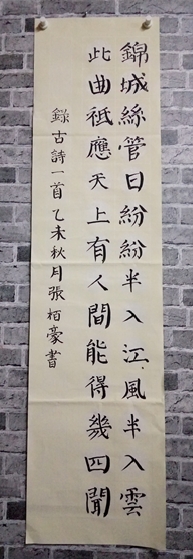 錦城絲管日紛紛半入江風半入雲
此曲祇應天上有人間能得幾四聞
錄古詩一首乙未秋月張栢豪書